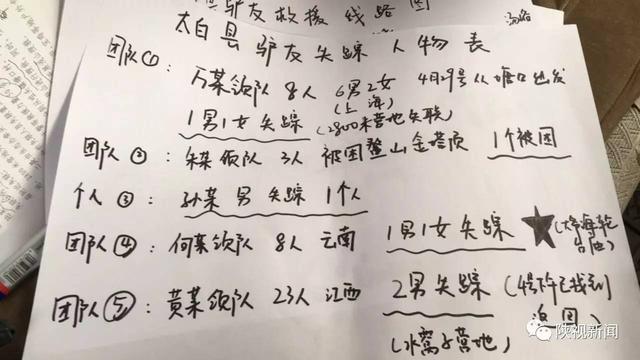 驴友救援线路图
太白县驴友失踪人物表
团队①: 万某领队 8人 6男2女 4月29号从塘口出发
(上海)
1男1女失踪 (2800米营地失联)
团队②: 朱某领队 3人 被困鳌山金塔顶 1个被困
个人③: 孙某 男 失踪 1个人
团队④: 何某领队 8人 云南 1男1女失踪 ★(大爷海乾
团队⑤: 黄某领队 23人 江西 2男失踪
(水窝子营地)
陕视新闻